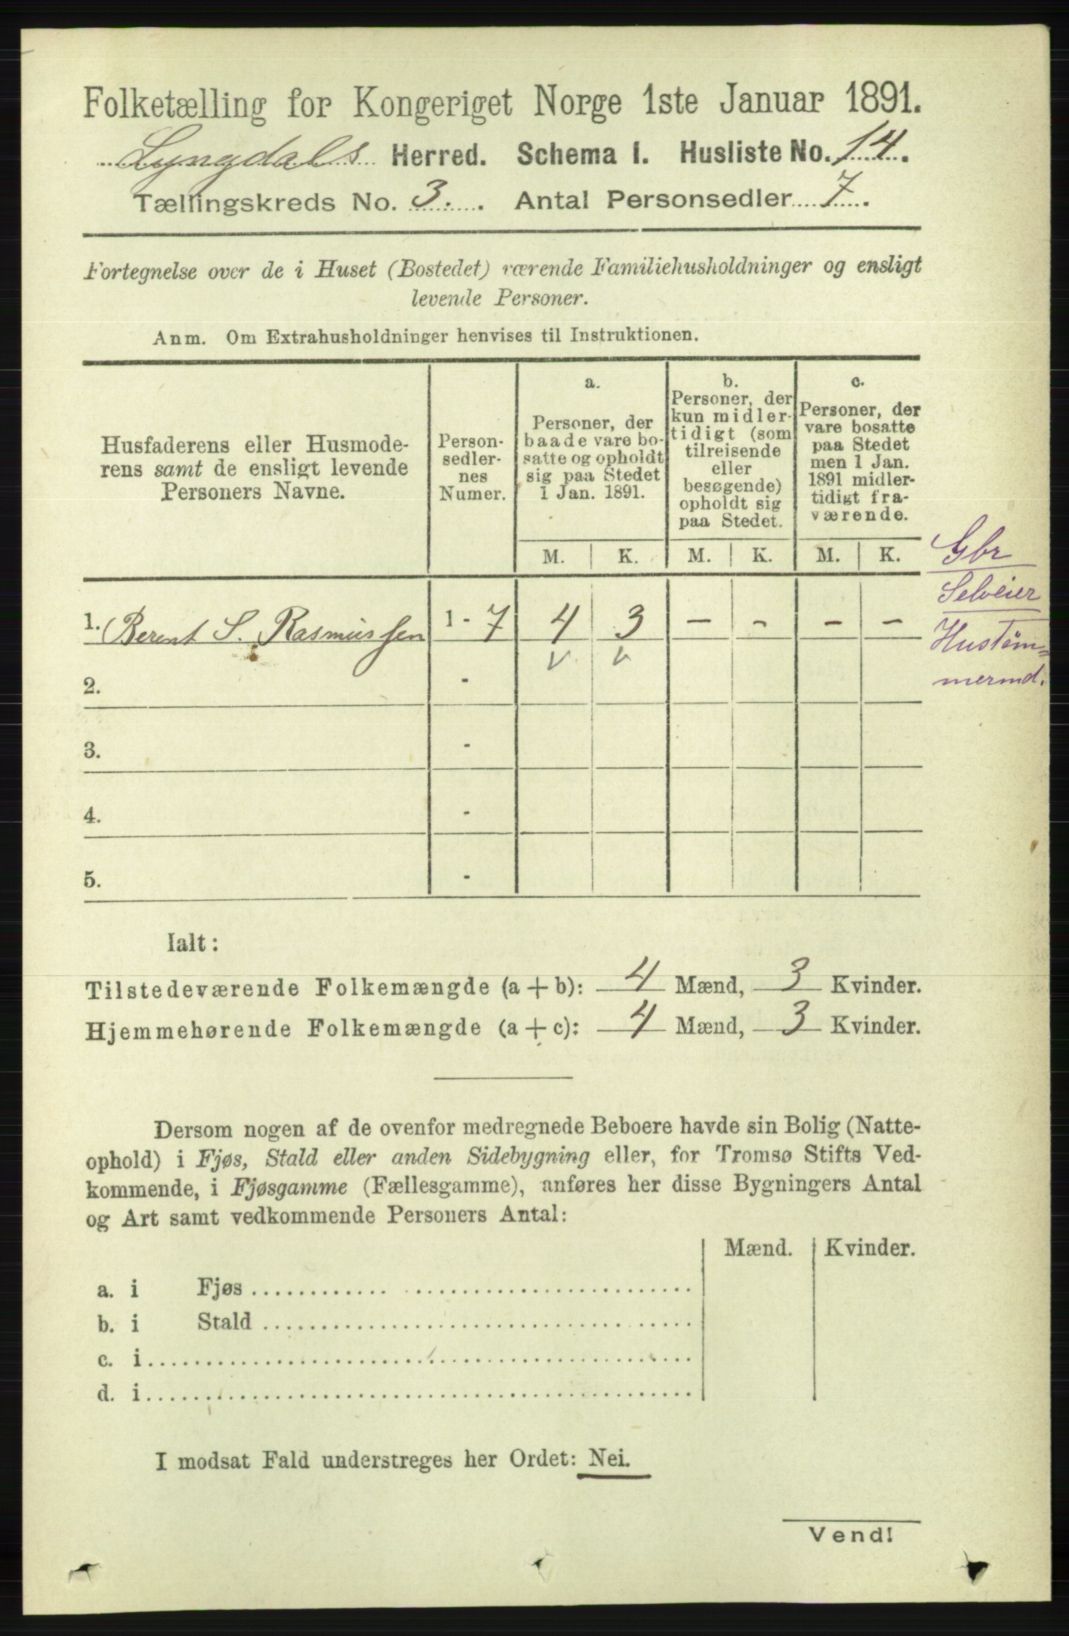 Folketælling for Kongeriget Norge 1ste Januar 1891.
Lyngdals Herred. Schema I. Husliste No. 14.
Tællingskreds No. 3. Antal Personsedler 7.
Fortegnelse over de i Huset (Bostedet) værende Familiehusholdninger og ensligt
levende Personer.
Anm. Om Extrahusholdninger henvises til Instruktionen.
Husfaderens eller Husmode-
rens samt de ensligt levende
Personers Navne.
Person-
sedler-
nes
Numer.
a.
Personer, der
baade vare bo-
satte og opholdt
sig paa Stedet
1 Jan. 1891.
b.
Personer, der
kun midler-
tidigt (som
tilreisende
eller
besøgende)
opholdt sig
paa Stedet.
c.
Personer, der
vare bosatte
paa Stedet
men 1 Jan.
1891 midler-
tidigt fra-
værende.
M. K. M. K. M. K.
Gbr
Selveier
Hustøm=
mermd.
1. Berent S. Rasmussen 1 - 7 4 3 - - - -
v v
2. -
3. -
4. -
5. -
Ialt:
Tilstedeværende Folkemængde (a + b): 4 Mænd, 3 Kvinder.
Hjemmehørende Folkemængde (a + c): 4 Mænd, 3 Kvinder.
Dersom nogen af de ovenfor medregnede Beboere havde sin Bolig (Natte-
ophold) i Fjøs, Stald eller anden Sidebygning eller, for Tromsø Stifts Ved-
kommende, i Fjøsgamme (Fællesgamme), anføres her disse Bygningers Antal
og Art samt vedkommende Personers Antal:
Mænd. Kvinder.
a. i Fjøs
b. i Stald
c. i
d. i
I modsat Fald understreges her Ordet: Nei.
Vend!